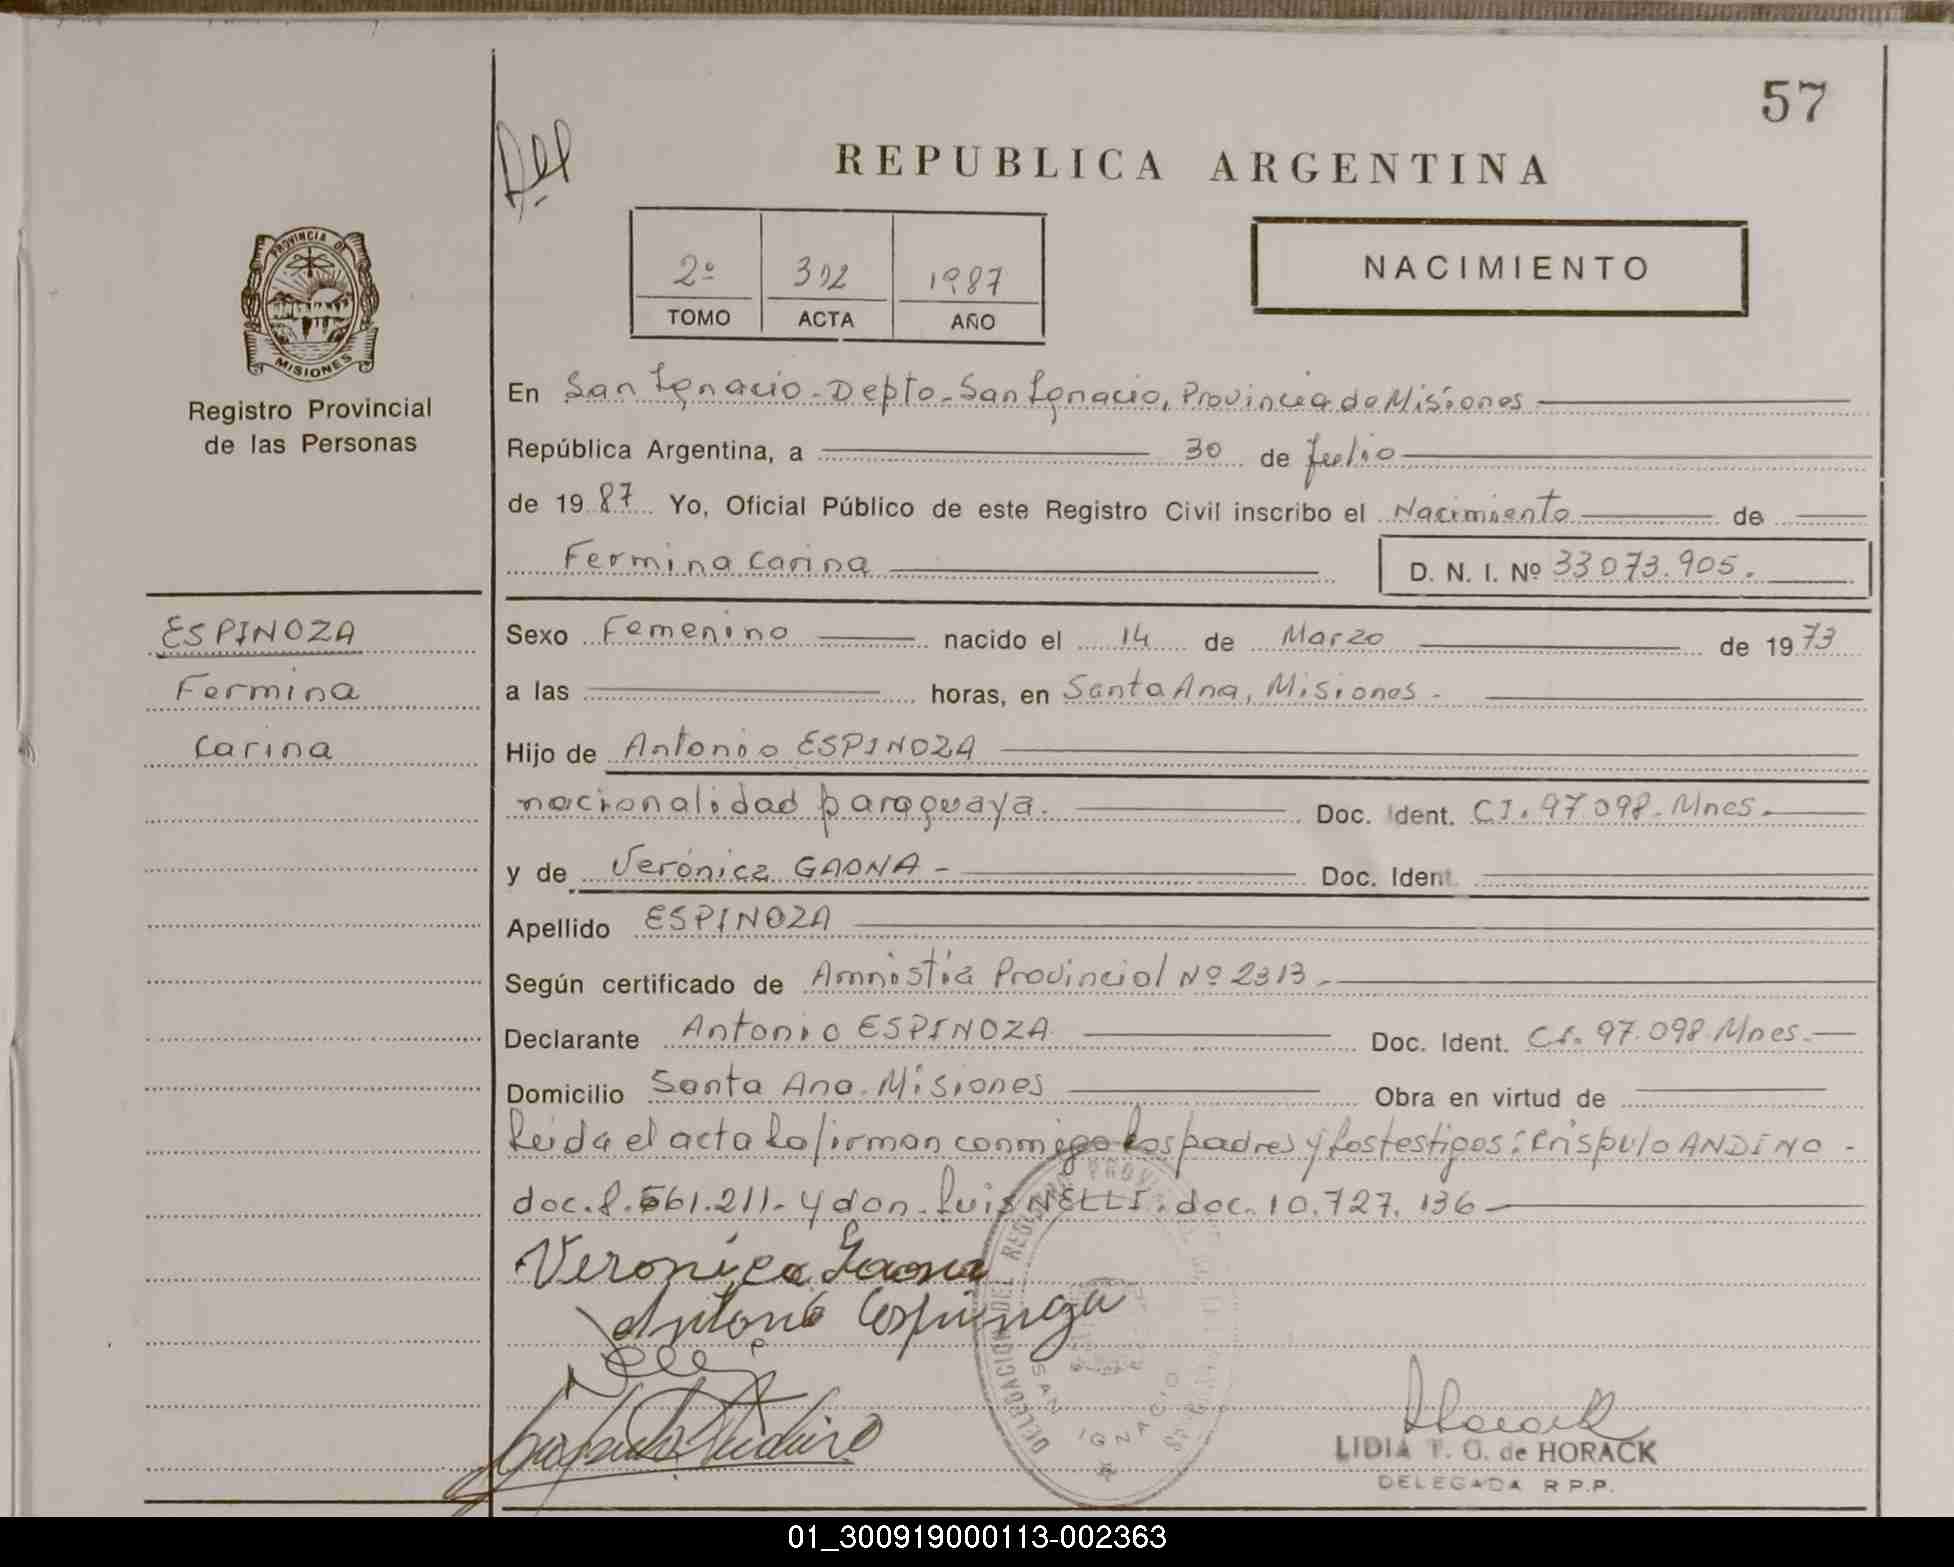 57
REPUBLICA ARGENTINA
2º 392 1987
TOMO ACTA AÑO
NACIMIENTO
PROVINCIA DE
MISIONES
Registro Provincial
de las Personas
En San Ignacio - Depto - San Ignacio, Provincia de Misiones
República Argentina, a 30 de Julio
de 1987 Yo, Oficial Público de este Registro Civil inscribo el Nacimiento de
Fermina Carina D. N. I. Nº 33073.905.
ESPINOZA
Fermina
Carina
Sexo Femenino nacido el 14 de Marzo de 1973
a las horas, en Santa Ana, Misiones -
Hijo de Antonio ESPINOZA
nacionalidad paraguaya. Doc. Ident. C.I. 97.098 - Mnes.
y de Verónica GAONA - Doc. Ident.
Apellido ESPINOZA
Según certificado de Amnistía Provincial Nº 2313 -
Declarante Antonio ESPINOZA Doc. Ident. C.I. 97.098 Mnes.
Domicilio Santa Ana. Misiones Obra en virtud de
Leida el acta la firman conmigo los padres y los testigos: Crispulo ANDINO -
doc. 8.561.211 - y don - Luis NELLI. doc. 10.727.136
Veronica Gaona
Antonio Espinoza
DELEGACION DEL REGISTRO PROVINCIAL
SAN IGNACIO
Horack
LIDIA T. G. de HORACK
DELEGADA R.P.P.
01_300919000113-002363